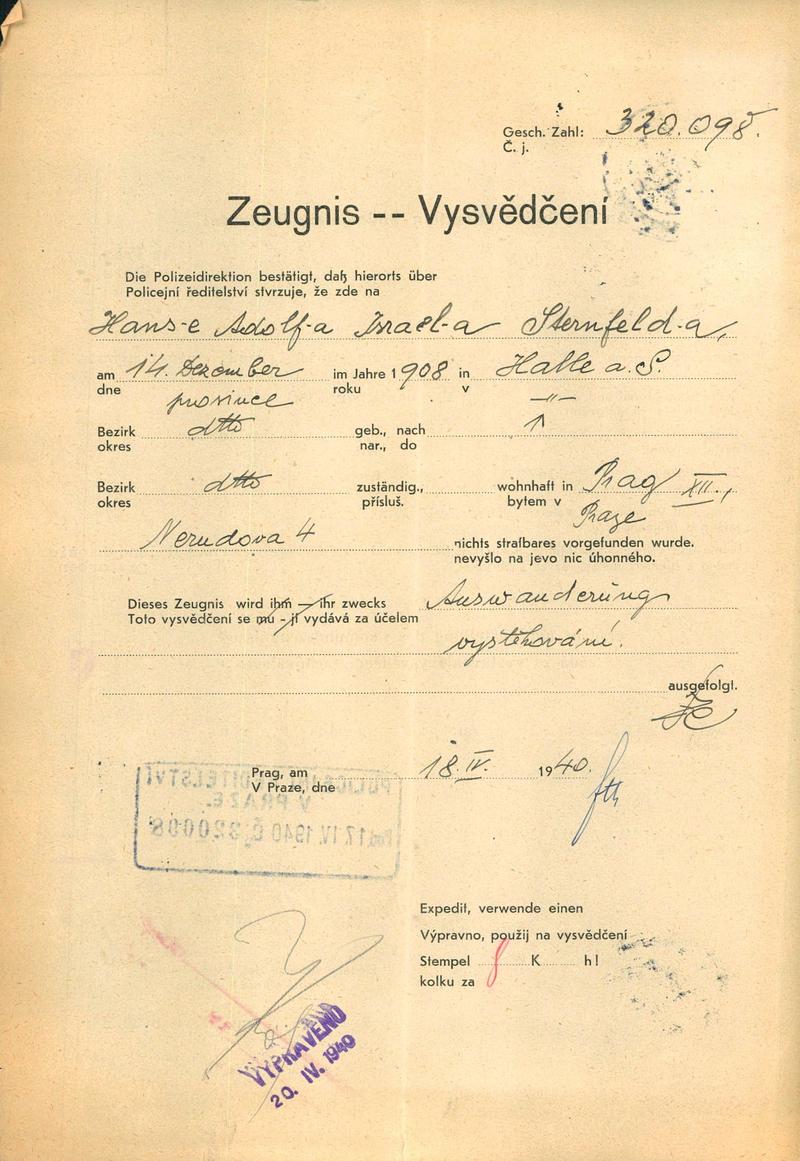 Gesch. Zahl: 320.098.
Č. j.
Zeugnis -- Vysvědčení
Die Polizeidirektion bestätigt, daß hierorts über
Policejní ředitelství stvrzuje, že zde na
Hans-e Adolf-a Israel-a Sternfeld-a,
am 14. Dezember im Jahre 1908 in Halle a. S.
dne prosince roku v -"-
Bezirk dtto geb., nach
okres nar., do
Bezirk dtto zuständig., wohnhaft in Prag XII.,
okres přísluš. bytem v Praze
Nerudova 4 nichts strafbares vorgefunden wurde.
nevyšlo na jevo nic úhonného.
Dieses Zeugnis wird ihm — ihr zwecks Auswanderung
Toto vysvědčení se mu - jí vydává za účelem
vystěhování.
ausgefolgt.
Prag, am 18. IV. 1940.
V Praze, dne
POLICEJNÍ ŘEDITELSTVÍ
V PRAZE.
17. IV. 1940 Č. 320098
Expedit, verwende einen
Výpravno, použij na vysvědčení
Stempel 8 K h!
kolku za
VYPRAVENO
20. IV. 1940